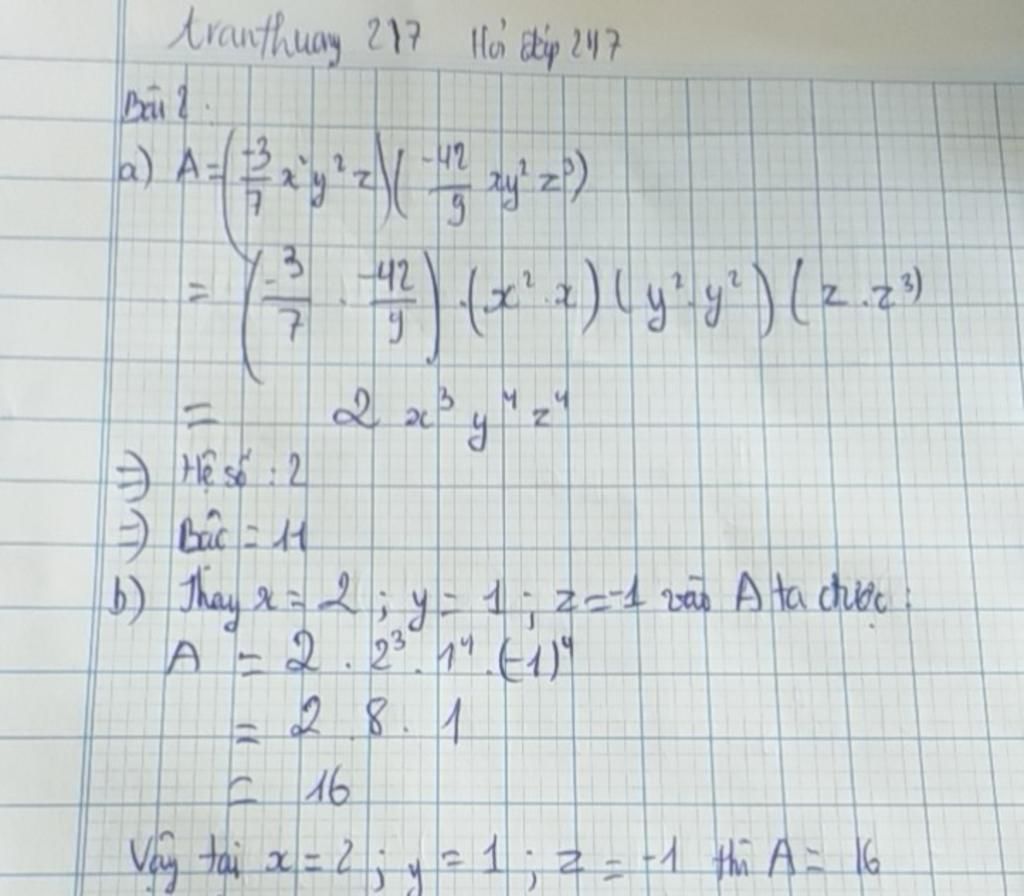 tranthuong 217 Hỏi đáp 247
Bài 2.
a) A = (-3/7 x² y² z) (-42/9 xy² z³)
= (-3/7 . -42/9) . (x² . x) (y² . y²) (z . z³)
= 2 x³ y⁴ z⁴
=) Hệ số : 2
=) Bậc = 11
b) Thay x = 2 ; y = 1 ; z = -1 vào A ta được :
A = 2 . 2³ . 1⁴ . (-1)⁴
= 2 . 8 . 1
= 16
Vậy tại x = 2 ; y = 1 ; z = -1 thì A = 16